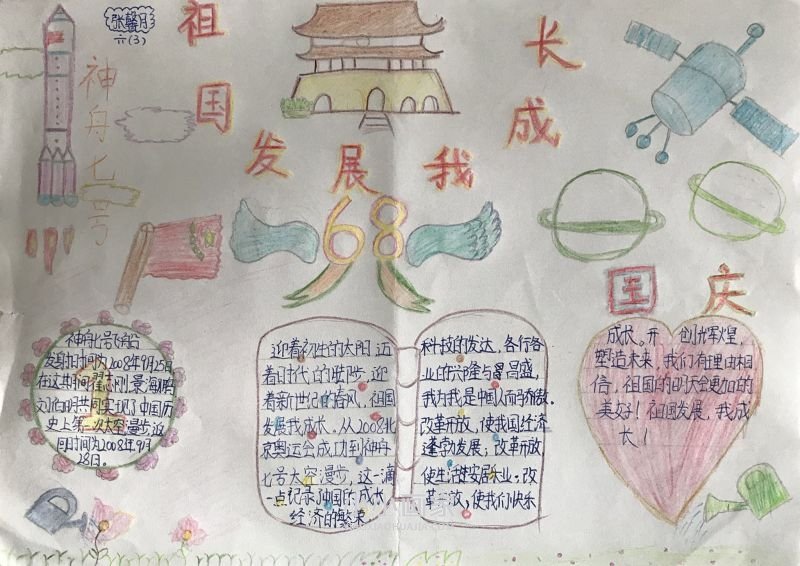 张馨月
六(3)
祖国发展我成长
神舟七号
68
国庆
神舟七号飞船
发射时间为2008年9月25日
在这共同翟志刚、景海鹏
刘伯明共同实现了中国历
史上第一次太空漫步返
回时间为2008年9月
28日。
迎着初生的太阳 迈
着时代的
着新世纪的春风,祖国
发展我成长。从2008北
京奥运会成功到神舟
七号太空漫步,这一滴
一点记录了中国际成长
经济的繁荣
科技的发达,各行各
业的兴隆与昌盛,
我为我是中国人而骄傲。
改革开放,使我国经济
蓬勃发展;改革开放,
使生活安居乐业。改
革开放,使我们快乐
成长。开 创辉煌,
塑造未来,我们有理由相
信,祖国的明天会更加的
美好!祖国发展,我成
长!